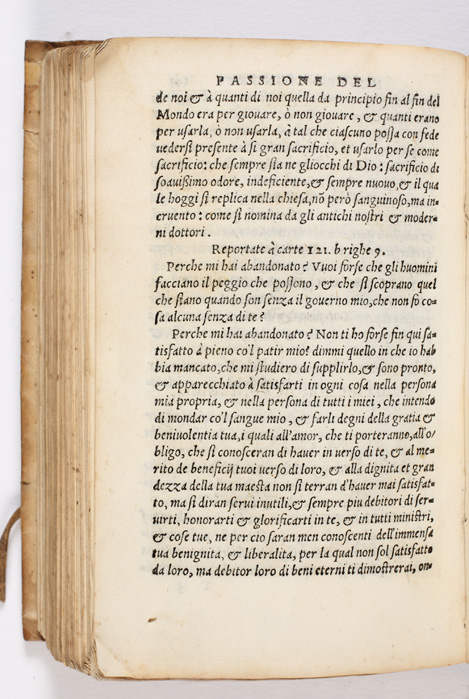 PASSIONE DEL
de noi & à quanti di noi quella da principio fin al fin del
Mondo era per giovare, ò non giovare, & quanti erano
per usarla, ò non usarla, à tal che ciascuno possa con fede
vedersi presente à si gran sacrificio, et usarlo per se come
sacrificio: che sempre sta ne gliocchi di Dio: sacrificio di
soavißimo odore, indeficiente,& sempre nuovo,& il qua
le hoggi si replica nella chiesa,nō però sanguinoso,ma in=
cruento: come si nomina da gli antichi nostri & moder=
ni dottori.
Reportate à carte 121. b righe 9.
Perche mi hai abandonato? Vuoi forse che gli huomini
facciano il peggio che possono, & che si scoprano quel
che siano quando son senza il governo mio,che non fò co=
sa alcuna senza di te?
Perche mi hai abandonato? Non ti ho forse fin qui sa=
tisfatto à pieno co'l patir mio? dimmi quello in che io hab
bia mancato,che mi studiero di supplirlo,& sono pronto,
& apparecchiato à satisfarti in ogni cosa nella persona
mia propria, & nella persona di tutti i miei, che intendo
di mondar co'l sangue mio, & farli degni della gratia &
benivolentia tua,i quali all'amor, che ti porteranno,all'o/
bligo, che si conosceran di haver in verso di te, & al me=
rito de beneficij tuoi verso di loro, & alla dignita et gran
dezza della tua maesta non si terran d'haver mai satisfat=
to, ma si diran servi inutili,& sempre piu debitori di ser=
virti, honorarti & glorificarti in te, & in tutti ministri,
& cose tue, ne per cio saran men conoscenti dell'immensa
tua benignita, & liberalita, per la qual non sol satisfatto
da loro, ma debitor loro di beni eterni ti dimostrerai, on=